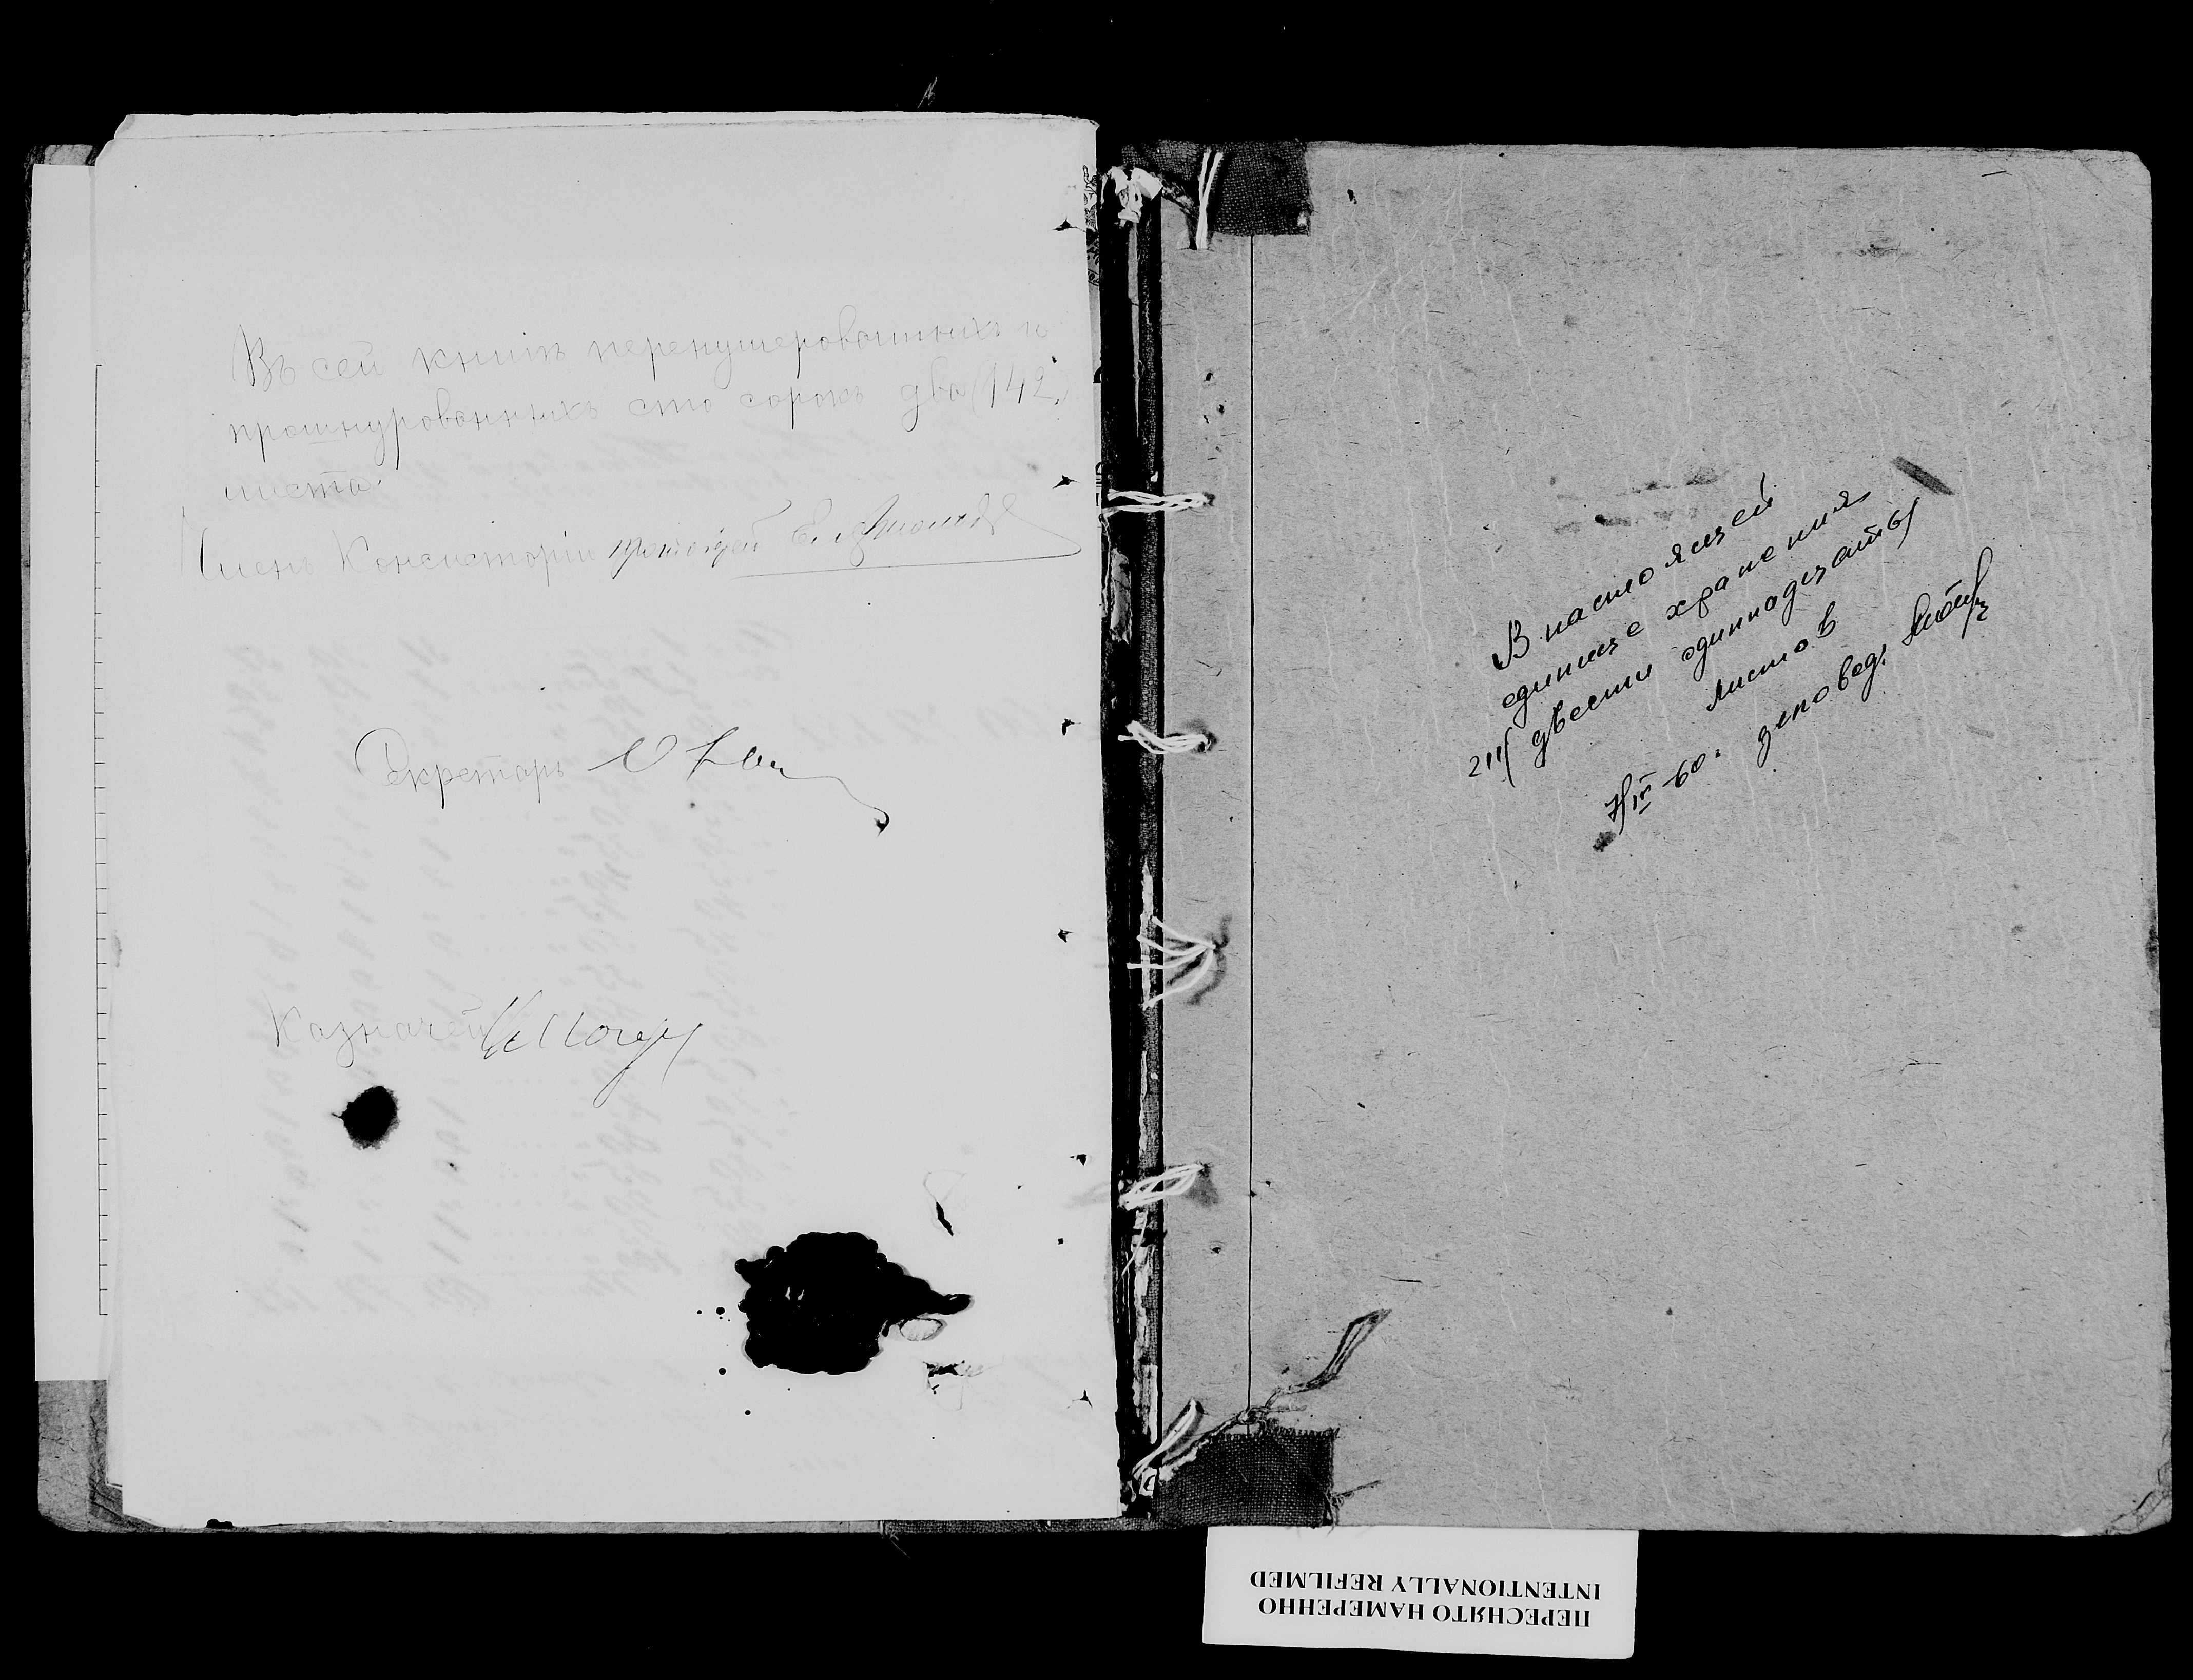 Въ сей книгѣ перенумерованныхъ и
прошнурованныхъ сто сорокъ два (142)
листа.
Членъ Консисторіи протоіерей Е.
Секретарь
Казначей
В настоящей
единице хранения
211/ двести одиннадцать/
листов
7/IV-60.
ПЕРЕСНЯТО НАМЕРЕННО
INTENTIONALLY REFILMED